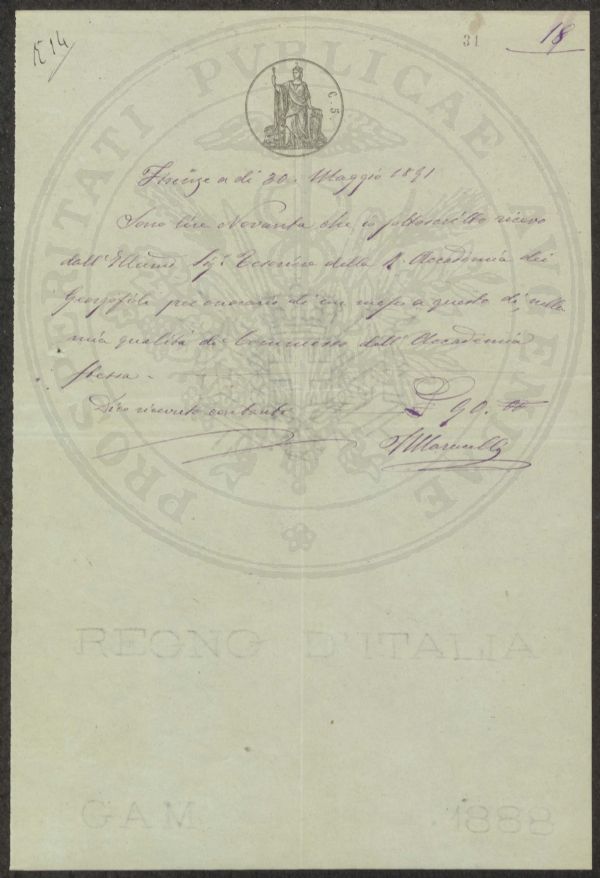 K 14
31
18
PROSPERITATI PVBLICAE AVGENDAE
C. 5.
Firenze a dì 30. Maggio 1891
Sono lire Novanta che io sottoscritto ricevo
dall'Illumo Sigr Tesoriere della R. Accademia dei
Georgofili per onorario di un mese a questo dì, nella
mia qualità di Commesso dell'Accademia
stessa.
Dico ricevute contante £ 90. "
REGNO D'ITALIA
GAM 1888